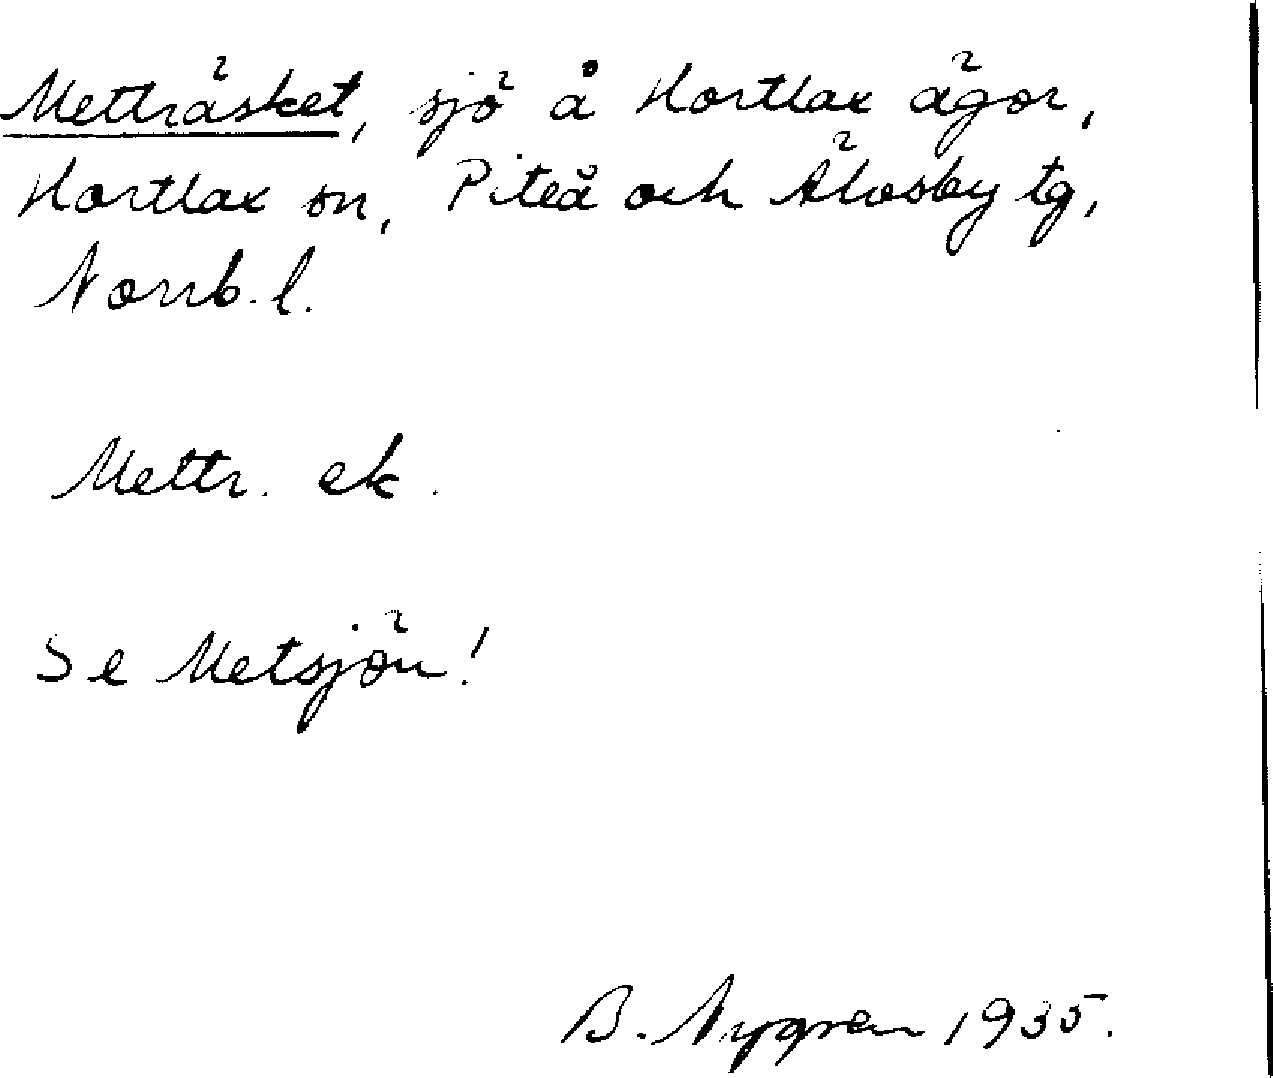 Metträsket, sjö å Hortlax ägor,
Hortlax sn, Piteå och Älvsby tg,
Norrb. l.
Mettr. ek.
Se Metsjön!
B. Nygren 1935.